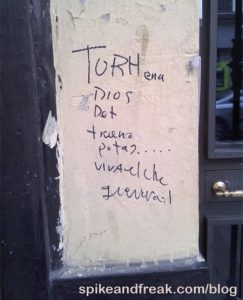 TORHena
DIOS
Del
trueno
potas.....
viva el che
guevara!
spikeandfreak.com/blog